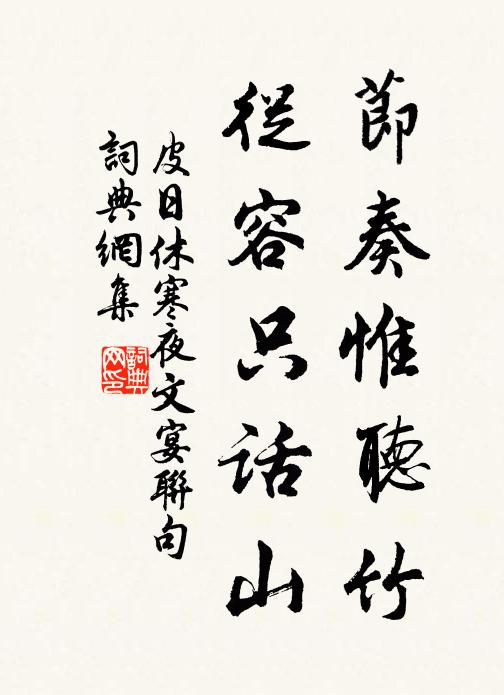 節奏惟聽竹
從容只話山
皮日休寒夜文宴聯句
詞典網集
詞典网印